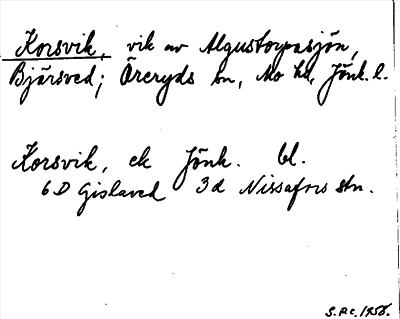 Korsvik, vik av Algustorpasjön,
Bjärsved; Öreryds sn, Mo hd, Jönk. l.
Korsvik, ek Jönk. bl.
6 D Gislaved 3 d Nissafors stn.
S.Ac. 1958.